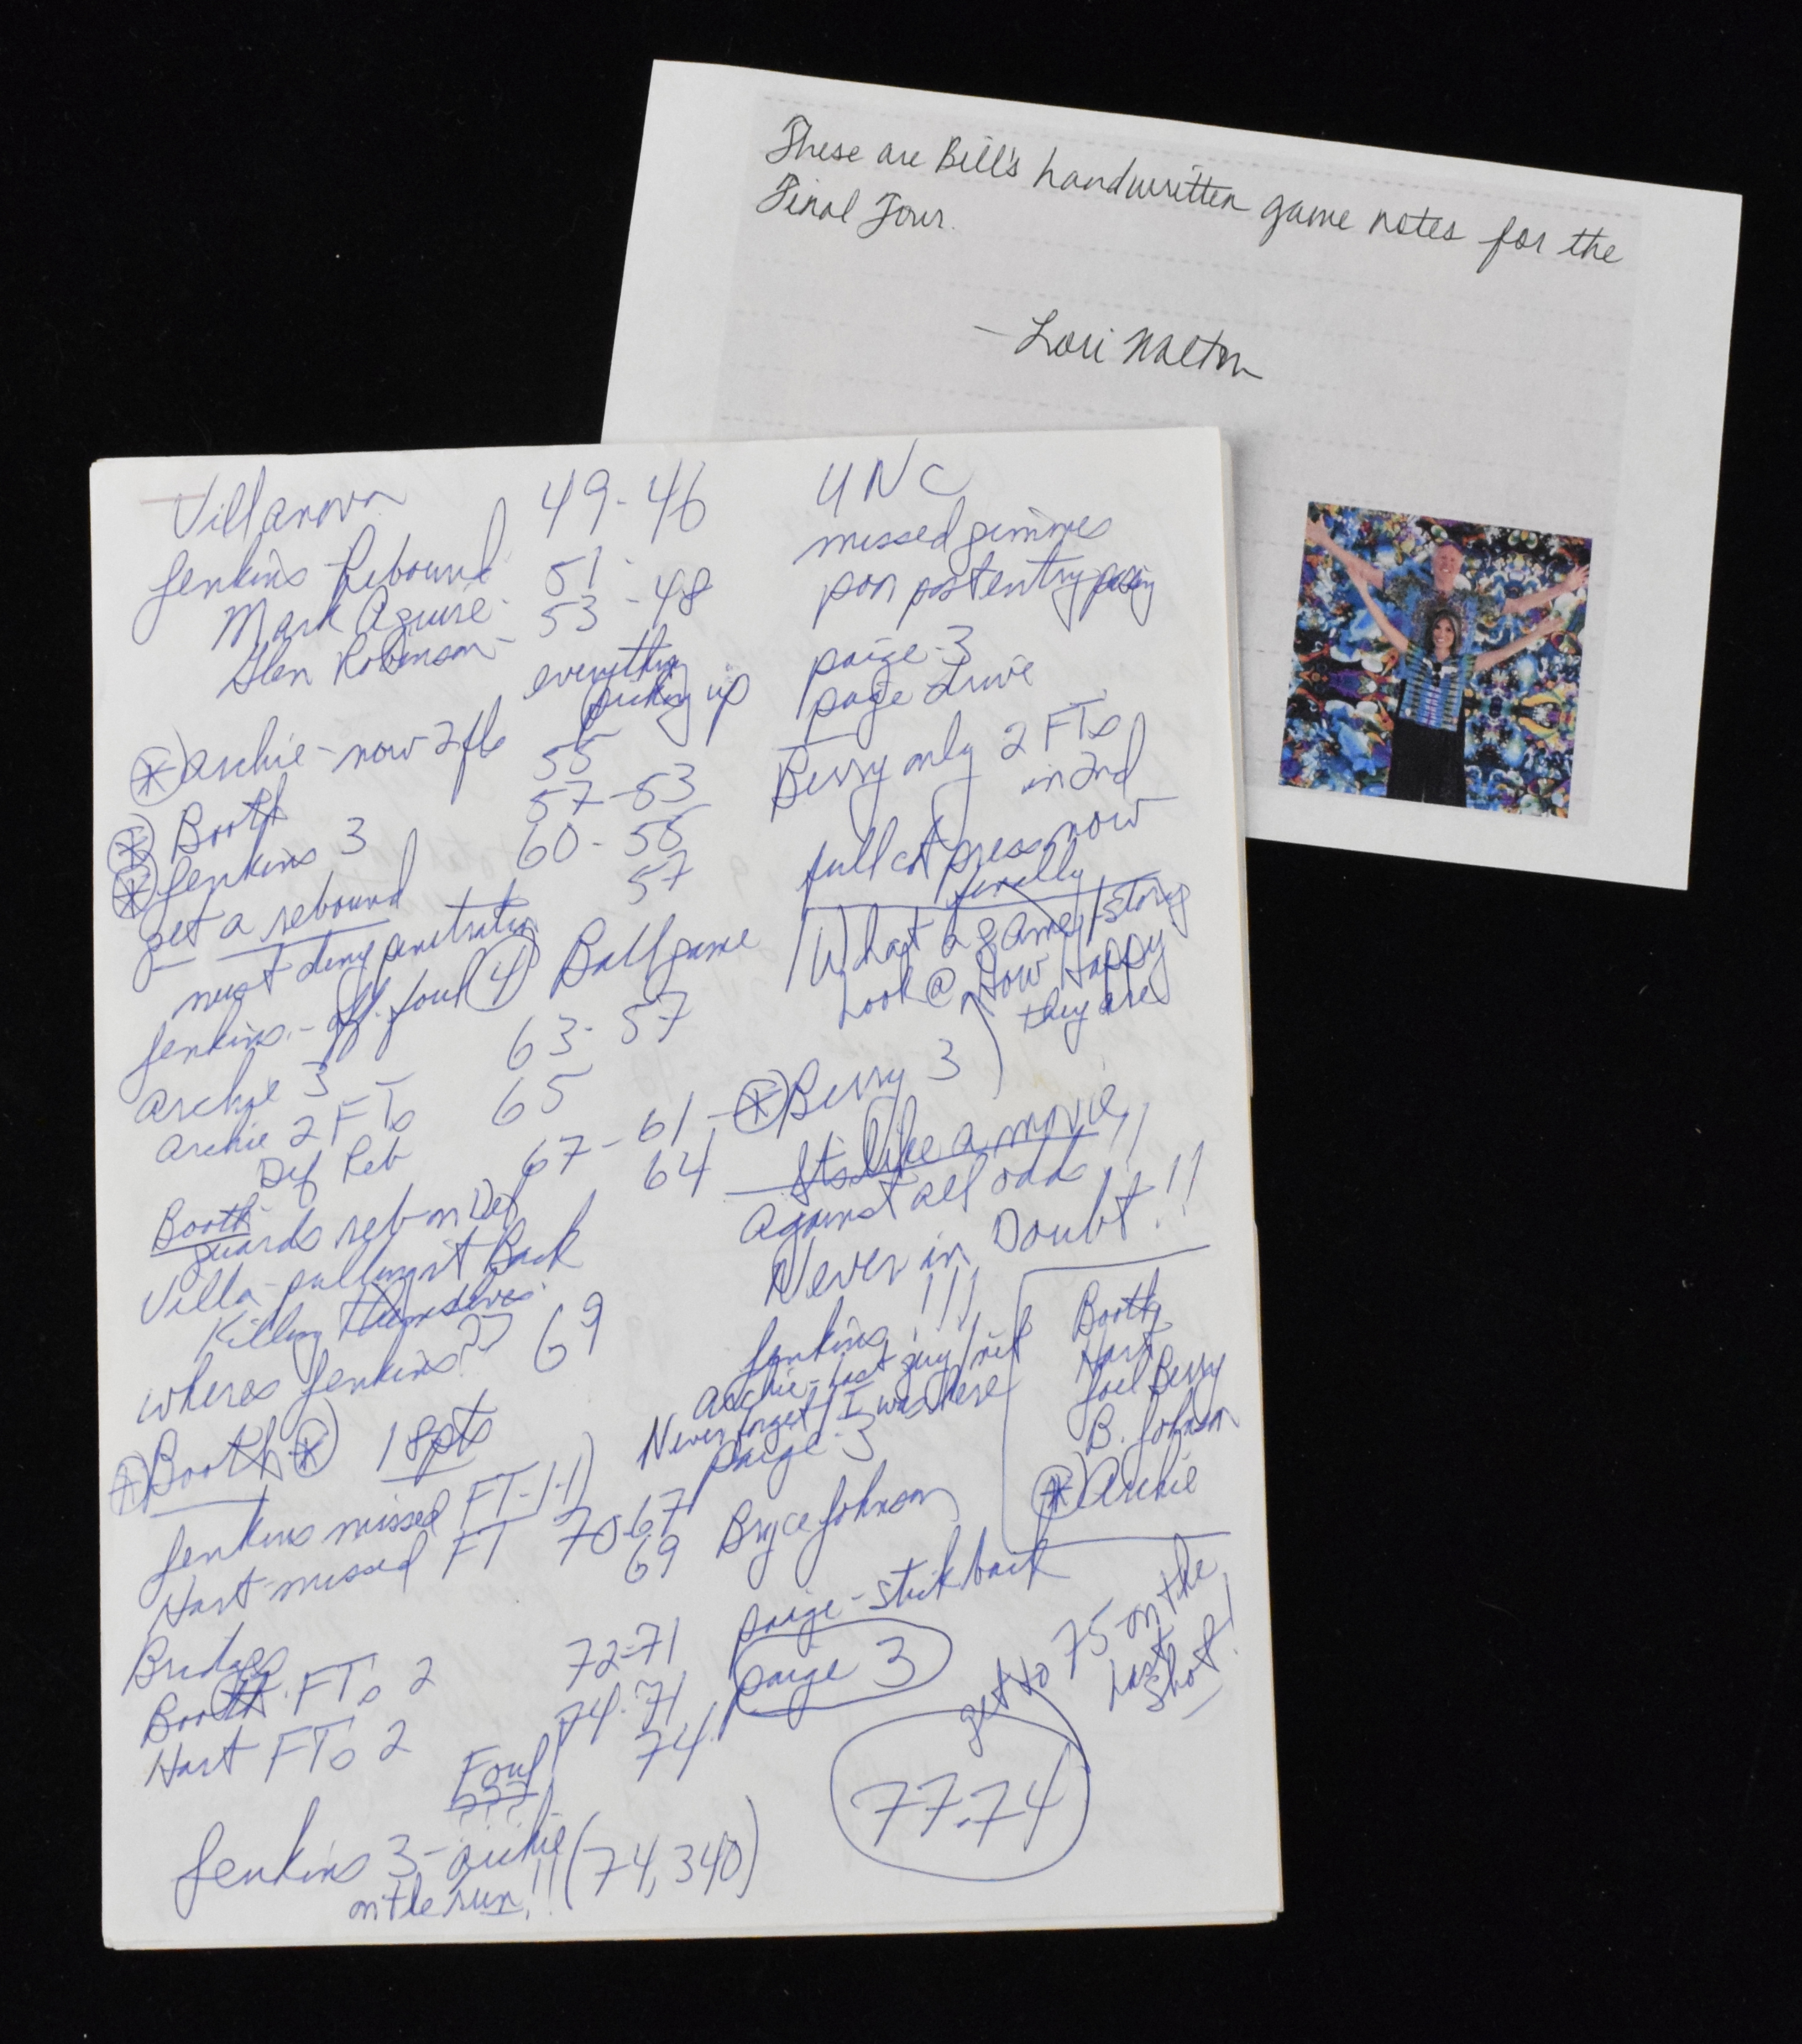 These are Bill's handwritten game notes for the
Final Four.
- Lori Walton
Villanova 49-46 UNC
Jenkins Rebound 51- missed gimmes
Mark Aguire - 53 -48 poor post entry passing
Glen Robinson - everything picking up paige -3
paige drive
Archie - now 2 fls 55 Berry only 2 FTs
in 2nd
Booth 57-53
Jenkins 3 60-55 full ct press now
finally
get a rebound 57
must deny penetration
What a game/story
Look @ How Happy
they are
Jenkins - off. foul 4 Ballgame
Archie 3 63-57
Archie 2 FTs 65 Berry 3
Def Reb 67-61-
64 Its like a movie,
Against all odds
Never in Doubt!!
Booth
guards reb on Def
Villa - pulling it Back
Killing themselves
wheres Jenkins?? 69
Jenkins!!!
Archie - last guy/
Never forget/I was here
paige -3
Booth
Hart
Joel Berry
B. Johnson
Archie
Booth 18 pts
Jenkins missed FT-1-1)
Hart missed FT 70-67 Bryce Johnson
69
paige - stickback
Bridges 72-71 paige 3
Booth FTs 2 74-71
Hart FTs 2 74
get to 75 on the
last
shot!
Foul
???
77-74
Jenkins 3 - archie (74,340)
on the run!!